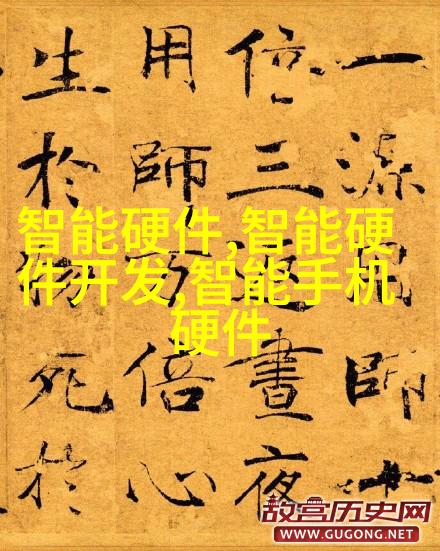 一源用師十
倍三返晝夜
用師万倍心
生於物死於
智能硬件,智能硬
件开发,智能手机
硬件
故宫历史网
WWW.GUGONG.NET